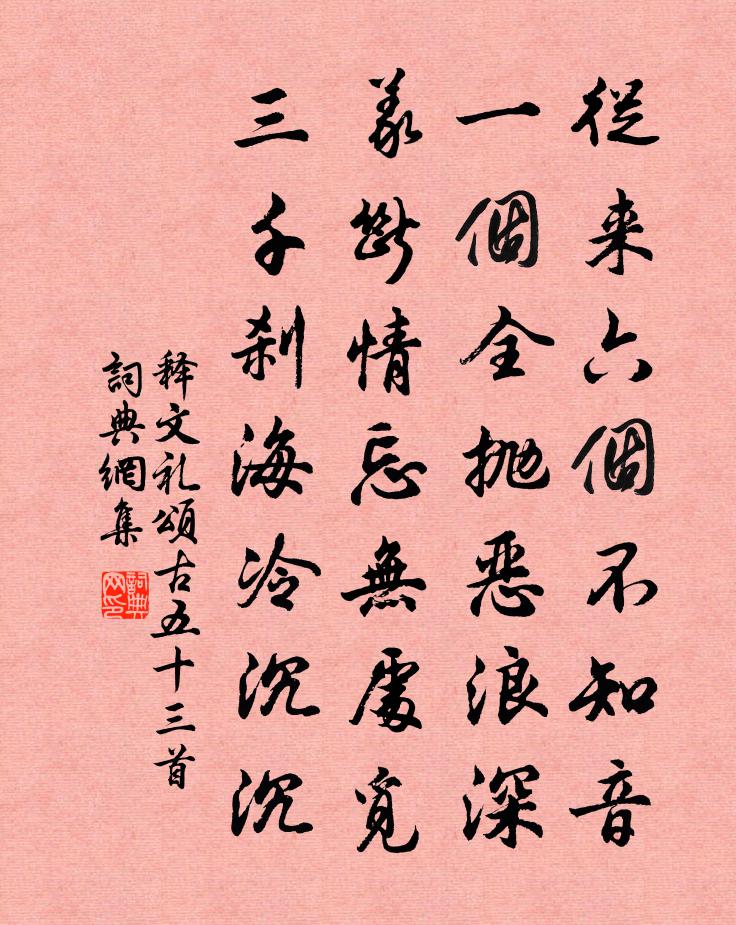 從来六個不知音
一個全抛恶浪深
義斷情忘無處覓
三千刹海冷沉沉
释文礼頌古五十三首
詞典網集
詞典网印